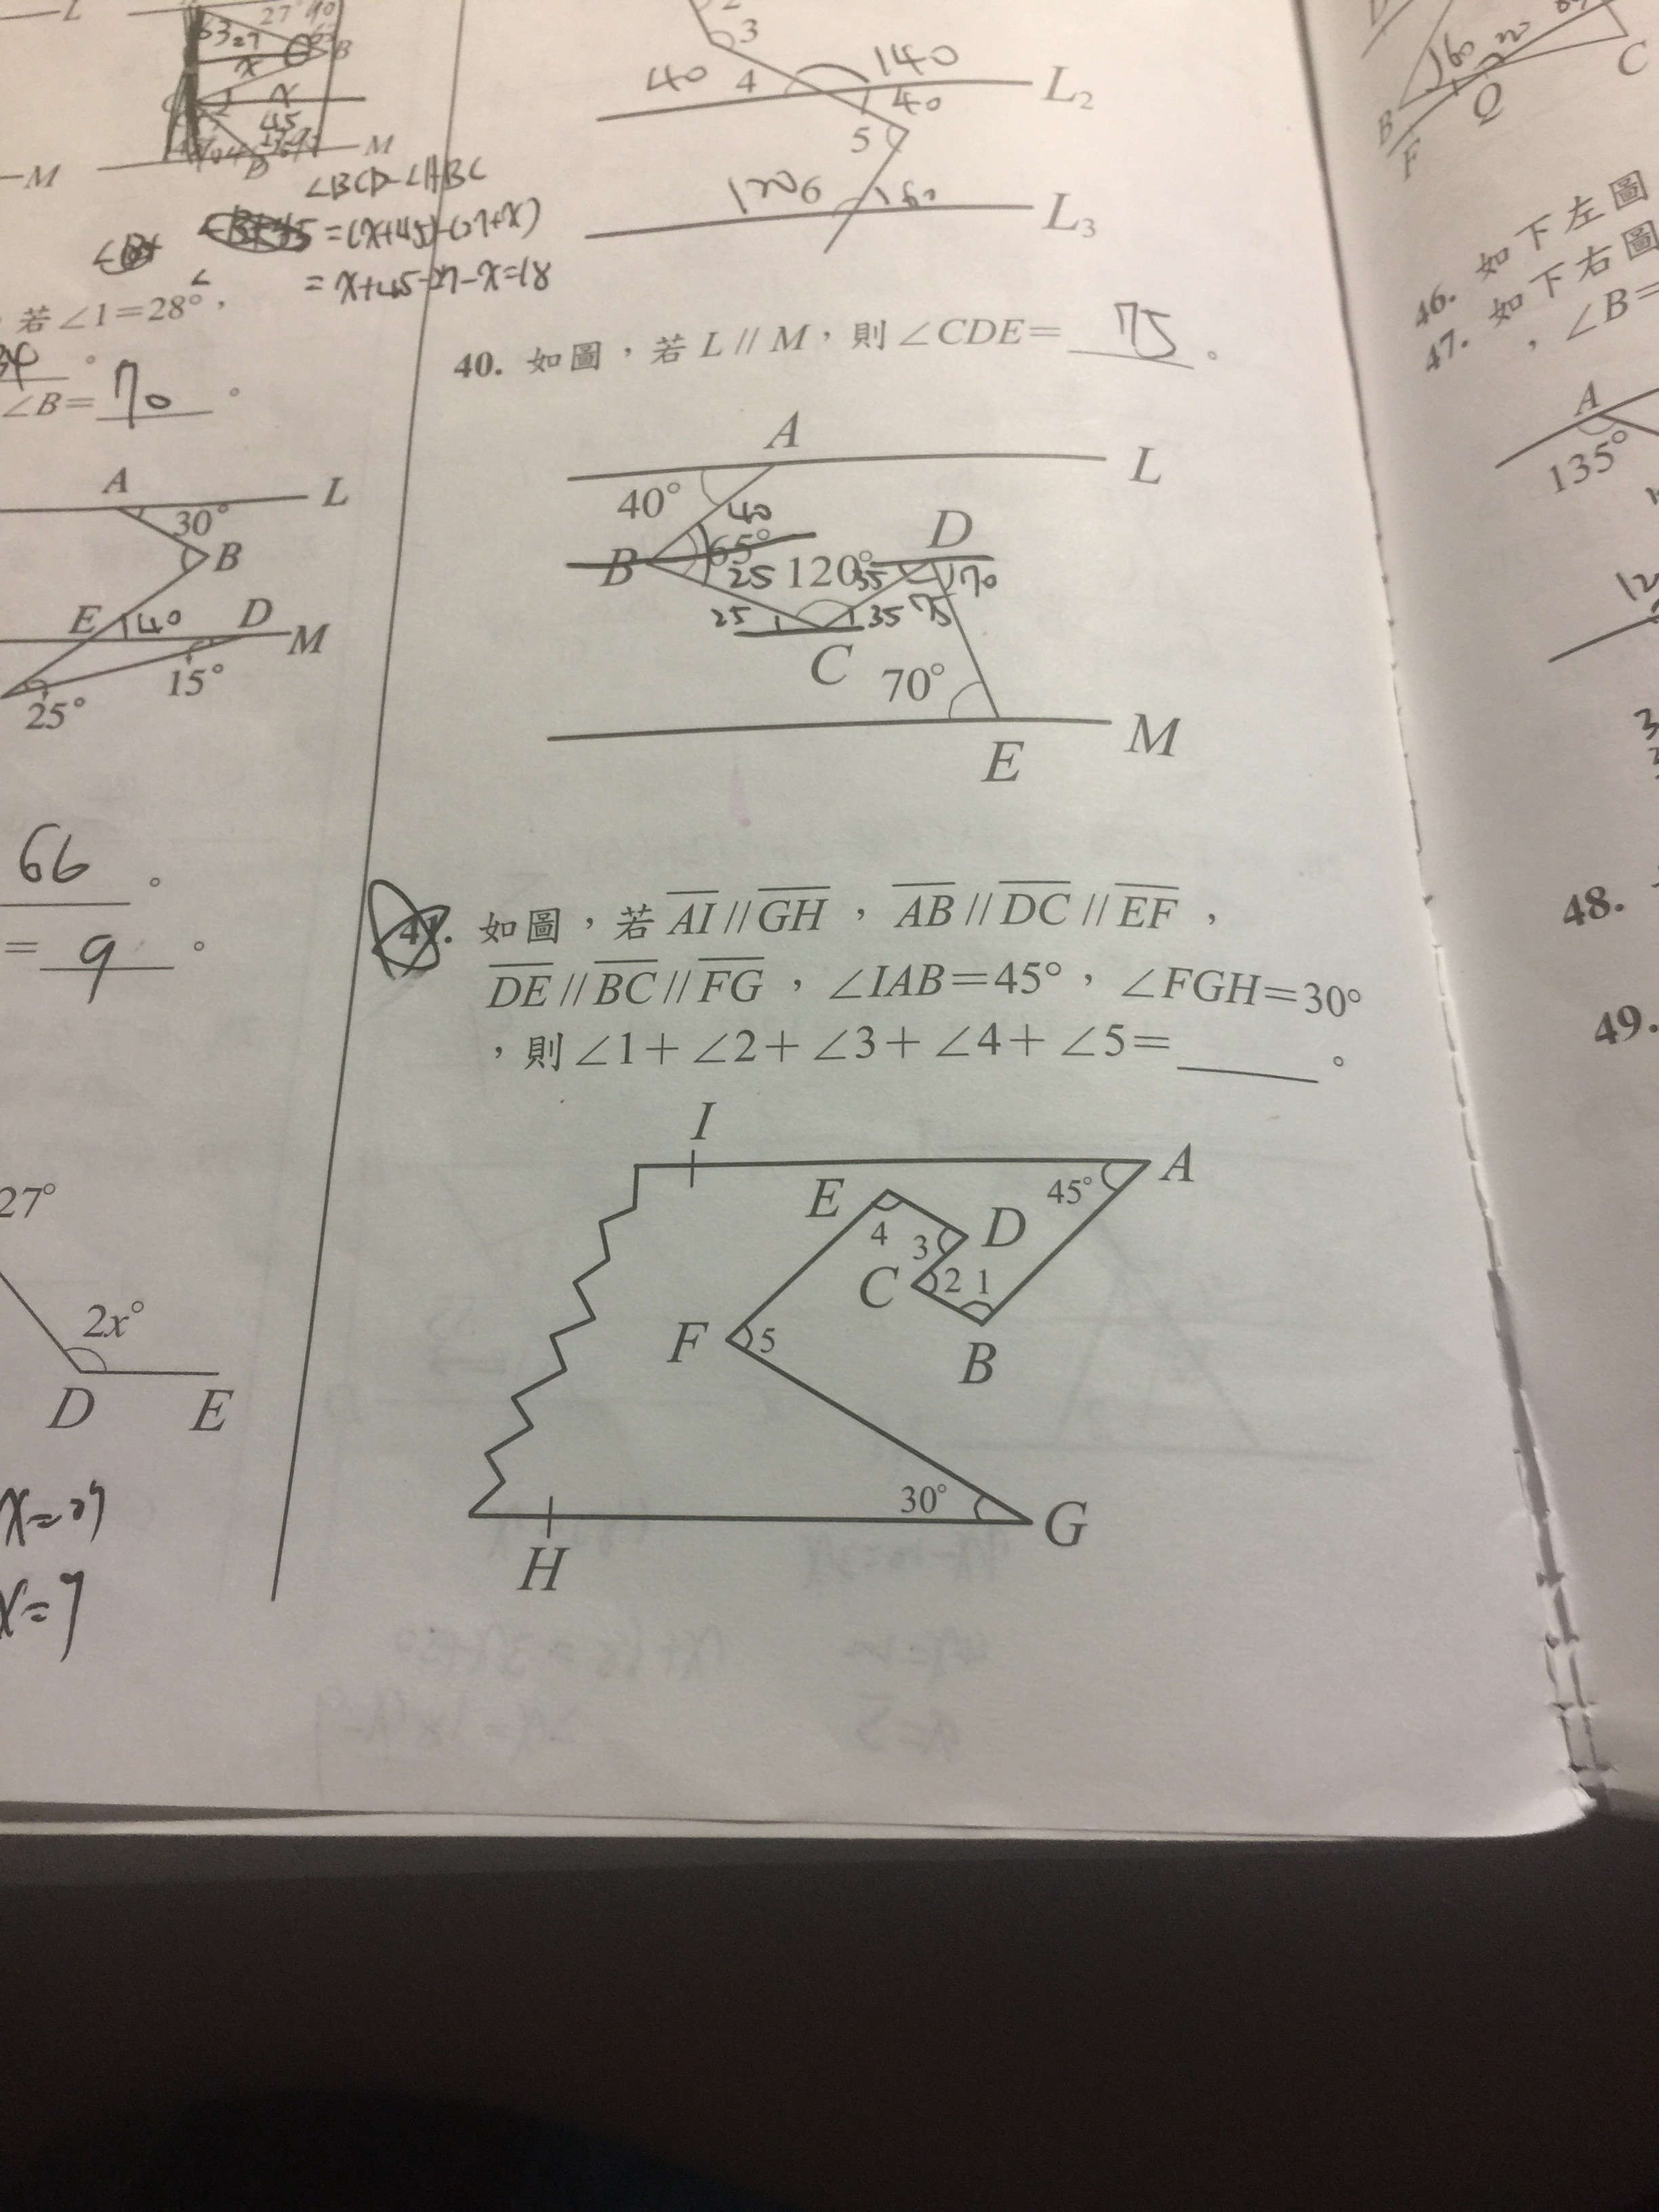 L
27° 90
63 27
B
x
x
45
M
D
M
∠BCD-∠ABC
=(x+45)-(27+x)
=x+45-27-x=18
若∠1=28°,
34 °
∠B=70°
A
L
30°
B
E
40
D
M
15°
25°
66 °
=9 °
27°
2x°
D
E
x=7
3
140
40
4
L₂
40
5
120
6
60
L₃
40. 如圖,若 L // M,則∠CDE= 75 °
A
L
40°
40
D
B
65°
25
120°
35
70
25
35
75
C
70°
M
E
41. 如圖,若 AI // GH , AB // DC // EF ,
DE // BC // FG , ∠IAB=45°, ∠FGH=30°
,則∠1+∠2+∠3+∠4+∠5=______ °
I
A
E
45°
D
4
3
C
2
1
F
5
B
30°
G
H
160
20
C
B
Q
F
46. 如下左圖
47. 如下右圖
,∠B=
A
135°
12
3
48.
49.